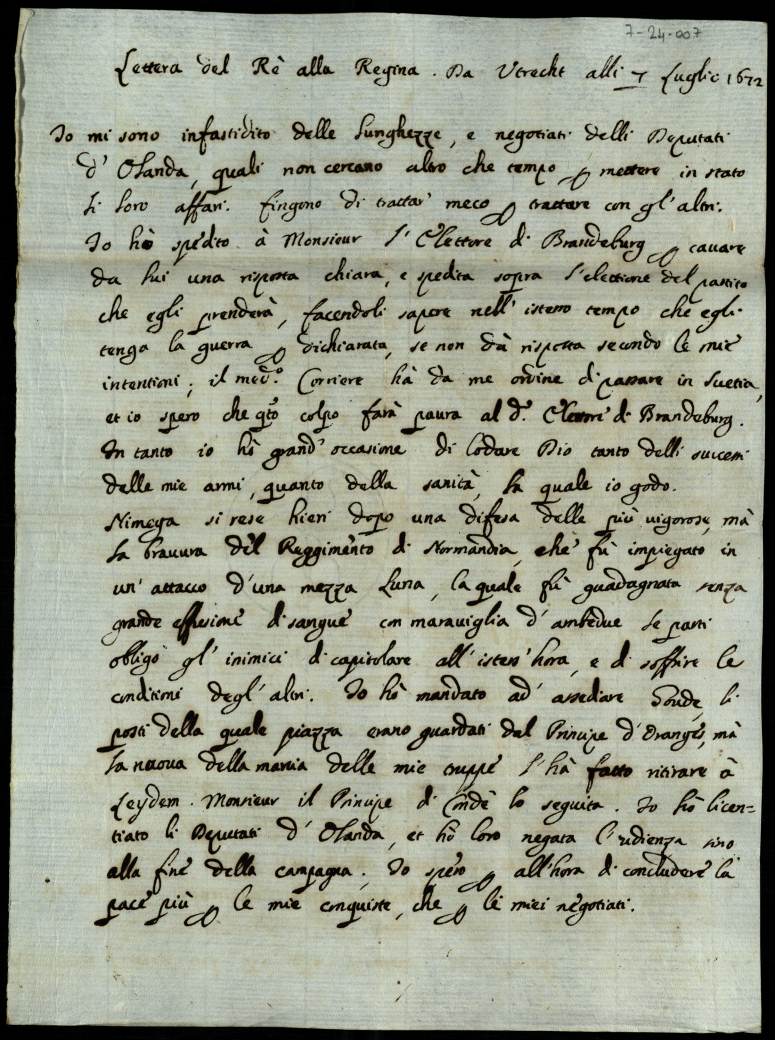 7-24-007
Lettera del Rè alla Regina. Da Utrecht alli 7 Luglio 1672
Io mi sono infastidito delle lunghezze, e negotiati delli Deputati
d'Olanda, quali non cercano altro che tempo ꝑ mettere in stato
li loro affari. Fingono di trattar meco ꝑ trattare con gl'altri.
Io hò spedito à Monsieur l'Elettore di Brandeburg ꝑ cavare
da lui una risposta chiara, e spedita sopra l'elettione del partito
che egli prenderà, facendoli sapere nell'istesso tempo che egli
tenga la guerra ꝑ dichiarata, se non dà risposta secondo le mie
intentioni; il med.º Corriere hà da me ordine di passare in Suetia,
et io spero che qto colpo farà paura al d.º Elettore di Brandeburg.
In tanto io hò grand'occasione di lodare Dio tanto delli successi
delle mie armi, quanto della sanità, la quale io godo.
Nimega si rese hieri dopo una difesa delle più vigorose, mà
la bravura del Reggimento di Normandia, che fù impiegato in
un'attacco d'una mezza Luna, la quale fù guadagnata senza
grande effusione di sangue con maraviglia d'ambedue le parti
obligò gl'inimici di capitolare all'istess'hora, e di soffrire le
conditioni degl'altri. Io hò mandato ad'assediare Goude, li
posti della quale piazza erano guardati dal Principe d'Oranges, mà
la nuova della marcia delle mie truppe l'hà fatto ritirare à
Leydem. Monsieur il Principe di Condè lo seguita. Io hò licen=
tiato li Deputati d'Olanda, et hò loro negata l'udienza sino
alla fine della campagna; Io spero ꝑ all'hora di concludere la
pace più ꝑ le mie conquiste, che ꝑ li miei negotiati.